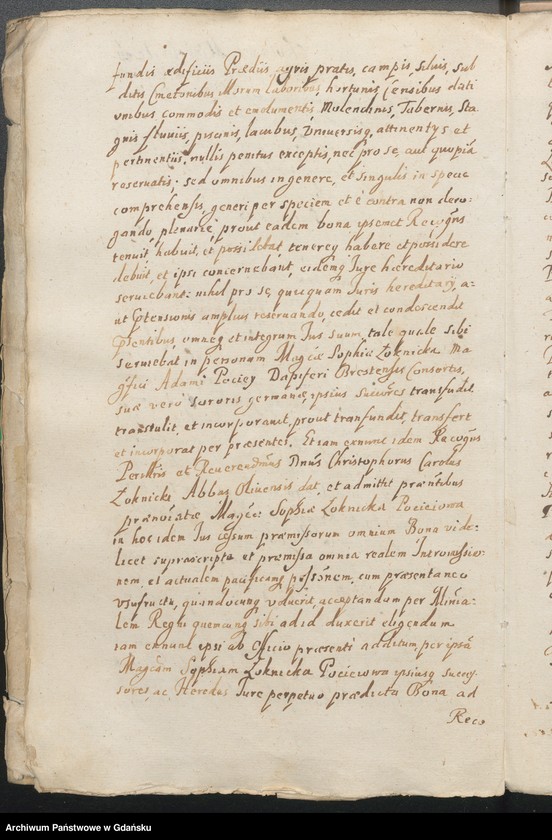 fundis ædificiis Prædiis, agris pratis, campis, siluis, sub
ditis Cmetonibus Morum laboribus, hortunis censibus dati
onibus commodis et emolumentis, Molendinis, Tabernis, Sta
gnis fluuiis, piscinis, lacubus, Vniuersisq, attinentys et
pertinentiis, nullis penitus exceptis, nec pro se, aut quopiã
reseruatis; sed omnibus in genere, et singulis in specie
comprehensis, generi per speciem et è contra non dero-
gando, plenariè, prout eadem bona ipsemet Recogns
tenuit, habuit, et possidebat, tenereq habere et possidere
debuit, et ipsi conicernebant, eidemq Iure hereditario
seruiebant: nihil pro se quicquam Iuris hereditary, a-
ut Ptensionis amplius reseruando, cedit et condescendit
Psentibus, omneq et integrum Ius suum, tale quale sibi
seruiebat in personam Magcæ Sophiæ Łoknicka Ma
gfici Adami Pociey Dapiferi Brestensis Consortis,
suæ verò sororis germanæ ipsius succres transfudit
transtulit, et incorporauit, prout transfundit, transfert
et incorporat per præsentes. Etiam exnunc idem Recogns
Perillris et Reuerendmus Dnus Christophorus Carolus
Łoknicki Abbas Oliuensis dat, et admittit præntibus
prænotatæ Magcæ: Sophiæ Łoknicka Pocieiowa
in hoc idem Ius ipsum præmissorum omnium Bona vide-
licet suprascripta et præmissa omnia realem Intromissio-
nem, et actualem pacificamq possonem, cum præsentaneo
Vsufructu, quandocunq voluerit, acceptandam per Minia-
lem Regni quemcunq sibi adid duxerit eligendum
iam exnunc ipsi ab officio præsenti additum, per ipsã
Magcam Sophiam Łoknicka Pocieiowa ipsiusq succes-
sores, ac Heredes Iure perpetuo prædicta Bona ad
Reco
Archiwum Państwowe w Gdańsku